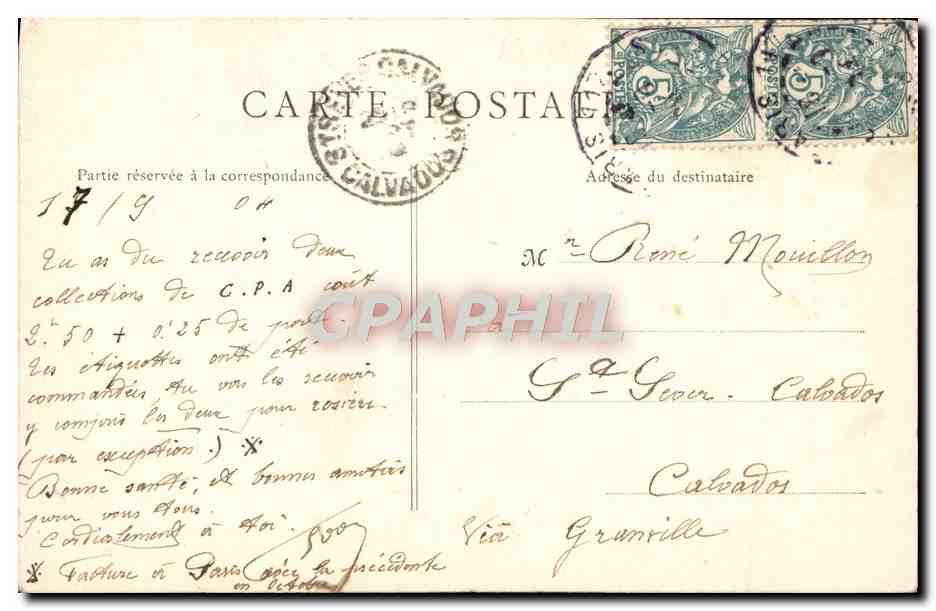 CARTE POSTALE
Partie réservée à la correspondance
Adresse du destinataire
ST SEVER CALVADOS
CALVADOS
PARIS
PARIS
POSTES
5
5
17/9 04
Tu as du recevoir deux
collections de C.P.A coût
2f.50 + 0f.25 de port.
Les étiquettes ont été
commandées, tu vas les recevoir
y compris les deux pour rosiers
(par exception.) X
Bonne santé, et bonnes amitiés
pour vous tous.
Cordialement à toi.
X Facture à Paris avec la précédente
en octobre
Mr René Mouillon
à
St Sever. Calvados
Calvados
Via Granville
CPAPHIL